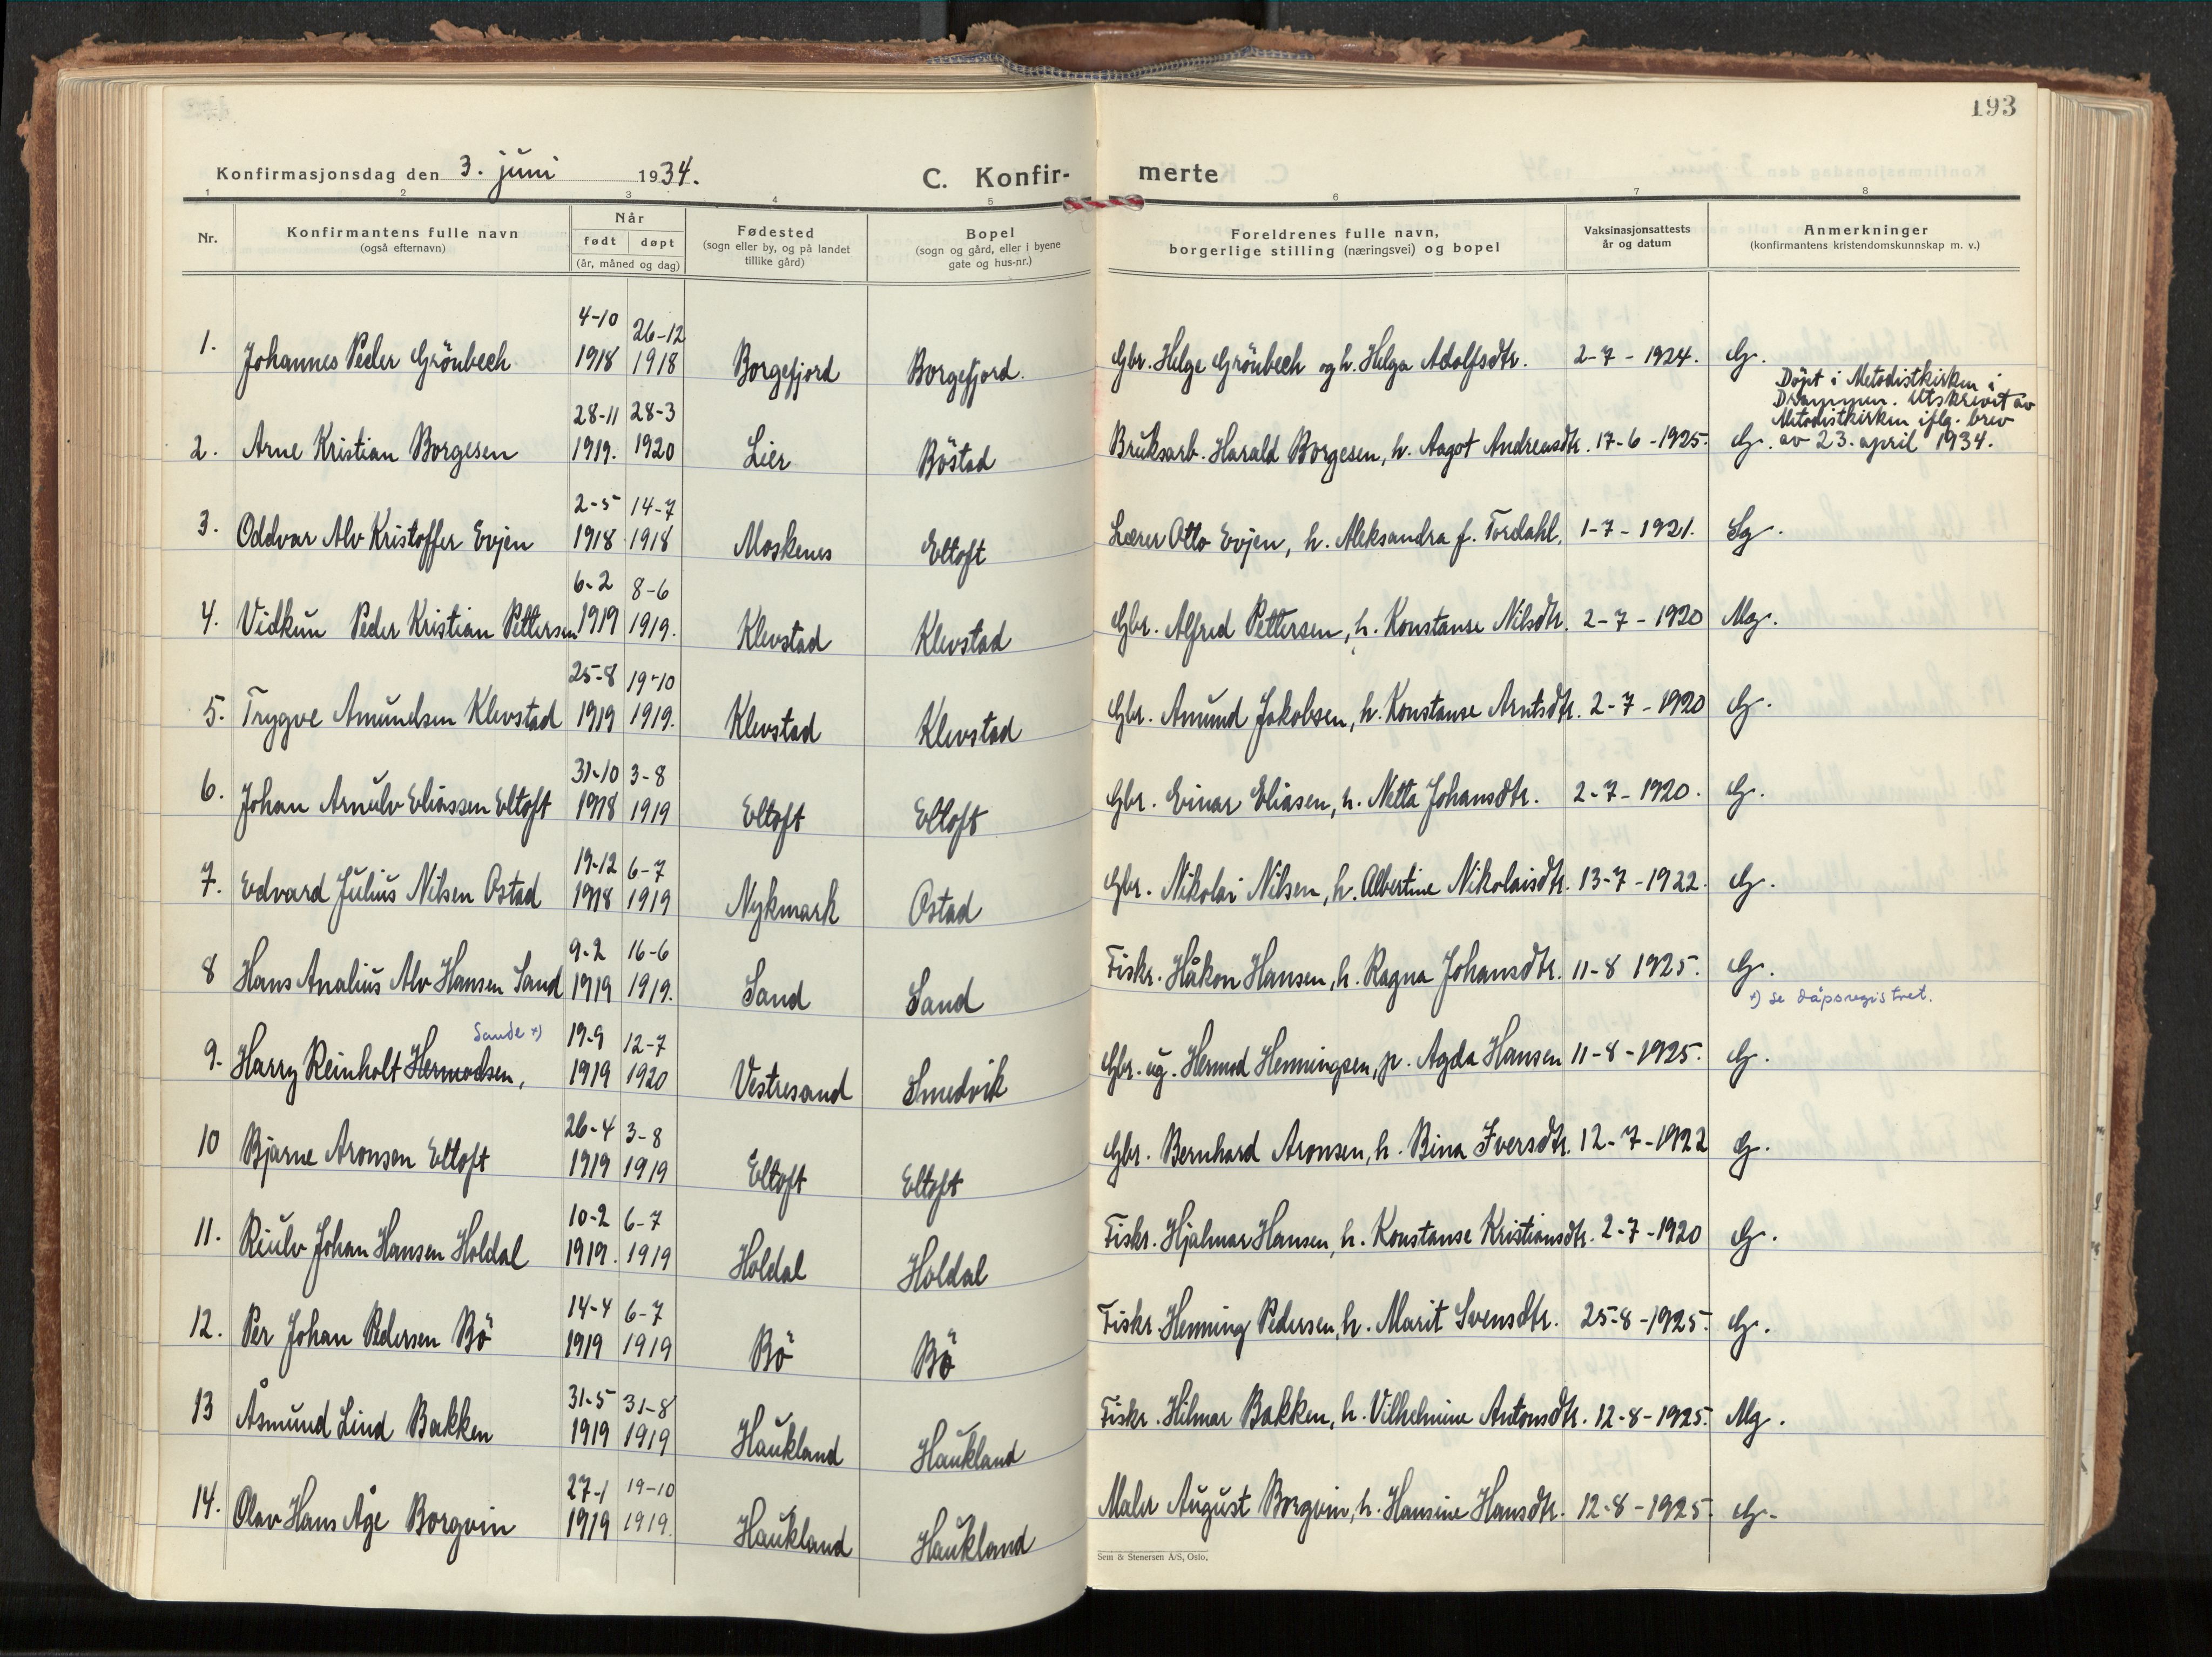 193
Konfirmasjonsdag den 3. juni 1934. C. Konfir- merte
1 2 3 4 5 6 7 8
Nr. Konfirmantens fulle navn (også efternavn) Når født døpt (år, måned og dag) Fødested (sogn eller by, og på landet tillike gård) Bopel (sogn og gård, eller i byene gate og hus-nr.) Foreldrenes fulle navn, borgerlige stilling (næringsvei) og bopel Vaksinasjonsattests år og datum Anmerkninger (konfirmantens kristendomskunnskap m. v.)
1. Johannes Peder Grönbech 4-10 1918 26-12 1918 Borgefjord Borgefjord. Gbr. Helge Grönbech og h. Helga Adolfsdtr. 2-7-1924. G.
2. Arne Kristian Borgesen 28-11 1919. 28-3 1920 Lier Böstad Bruksarb. Harald Borgesen, h. Aagot Andreasdtr. 17-6-1925. G. Döpt i Metodistkirken i
Drammen. Utskrevet av
Metodistkirken iflg. brev
av 23. april 1934.
3. Oddvar Alv Kristoffer Evjen 2-5 1918 14-7 1918 Moskenes Eltoft Lærer Otto Evjen, h. Aleksandra f. Tordahl. 1-7-1921. Sg.
4. Vidkun Peder Kristian Pettersen 6-2 1919 8-6 1919. Klevstad Klevstad Gbr. Alfred Pettersen, h. Konstanse Nilsdtr. 2-7-1920 Mg.
5. Trygve Amundsen Klevstad 25-8 1919 19-10 1919. Klevstad Klevstad Gbr. Amund Jakobsen, h. Konstanse Arntsdtr. 2-7-1920 G.
6. Johan Arnulv Eliassen Eltoft 31-10 1918 3-8 1919 Eltoft Eltoft Gbr. Einar Eliasen, h. Netta Johansdtr. 2-7-1920. G.
7. Edvard Julius Nilsen Ostad 19-12 1918 6-7 1919 Nykmark Ostad Gbr. Nikolai Nilsen, h. Albertine Nikolaisdtr. 13-7-1922. G.
8 Hans Analius Alv Hansen Sand 9-2 1919 16-6 1919. Sand Sand Fiskr. Håkon Hansen, h. Ragna Johansdtr. 11-8 1925. G.
*) se dåpsregistret.
Sande *)
9. Harry Reinholt Hermodsen, 19-9 1919 12-7 1920 Vestresand Smedvik Gbr. ug. Hermod Henningsen, p. Agda Hansen 11-8-1925. G.
10 Bjarne Aronsen Eltoft 26-4 1919 3-8 1919 Eltoft Eltoft Gbr. Bernhard Aronsen, h. Bina Iversdtr. 12-7-1922 G.
11. Riulv Johan Hansen Holdal 10-2 1919. 6-7 1919 Holdal Holdal Fiskr. Hjalmar Hansen, h. Konstanse Kristiansdtr. 2-7-1920 G.
12. Per Johan Pedersen Bö 14-4 1919 6-7 1919 Bö Bö Fiskr. Henning Pedersen, h. Marit Svensdtr. 25-8-1925. G.
13 Åsmund Lind Bakken 31-5 1919 31-8 1919 Haukland Haukland Fiskr. Hilmar Bakken, h. Vilhelmine Antonsdtr. 12-8-1925. Mg.
14. Olav Hans Åge Borgvin 27-1 1919 19-10 1919. Haukland Haukland Maler August Borgvin, h. Hansine Hansdtr. 12-8-1925. G.
Sem & Stenersen A/S, Oslo.